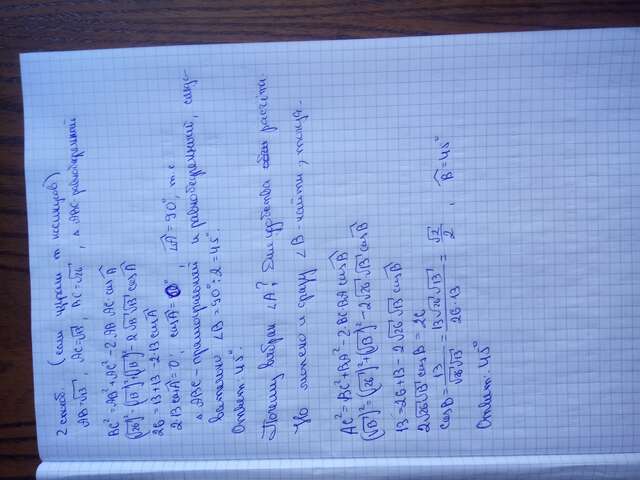 2 способ. (если нужны т. косинусов)
AB = √13, AC = √13, BC = √26, △ ABC равнобедренный
BC² = AB² + AC² - 2·AB·AC·cos A
(√26)² = (√13)² + (√13)² - 2·√13·√13·cos A
26 = 13 + 13 - 2·13·cos A
2·13 cos A = 0; cos A = 0, ∠A = 90°, т.е.
△ ABC - прямоугольный и равнобедренный, следо-
вательно ∠B = 90° : 2 = 45°.
Ответ: 45°.
Почему выбран ∠A? Для удобства расчёта
Но можно и сразу ∠B найти, тогда.
AC² = BC² + BA² - 2·BC·BA·cos B
(√13)² = (√26)² + (√13)² - 2·√26·√13·cos B
13 = 26 + 13 - 2·√26·√13·cos B
2√26√13 cos B = 26
cos B = 13/√26·√13 = 13√26√13/26·13 = √2/2, B = 45°
Ответ: 45°